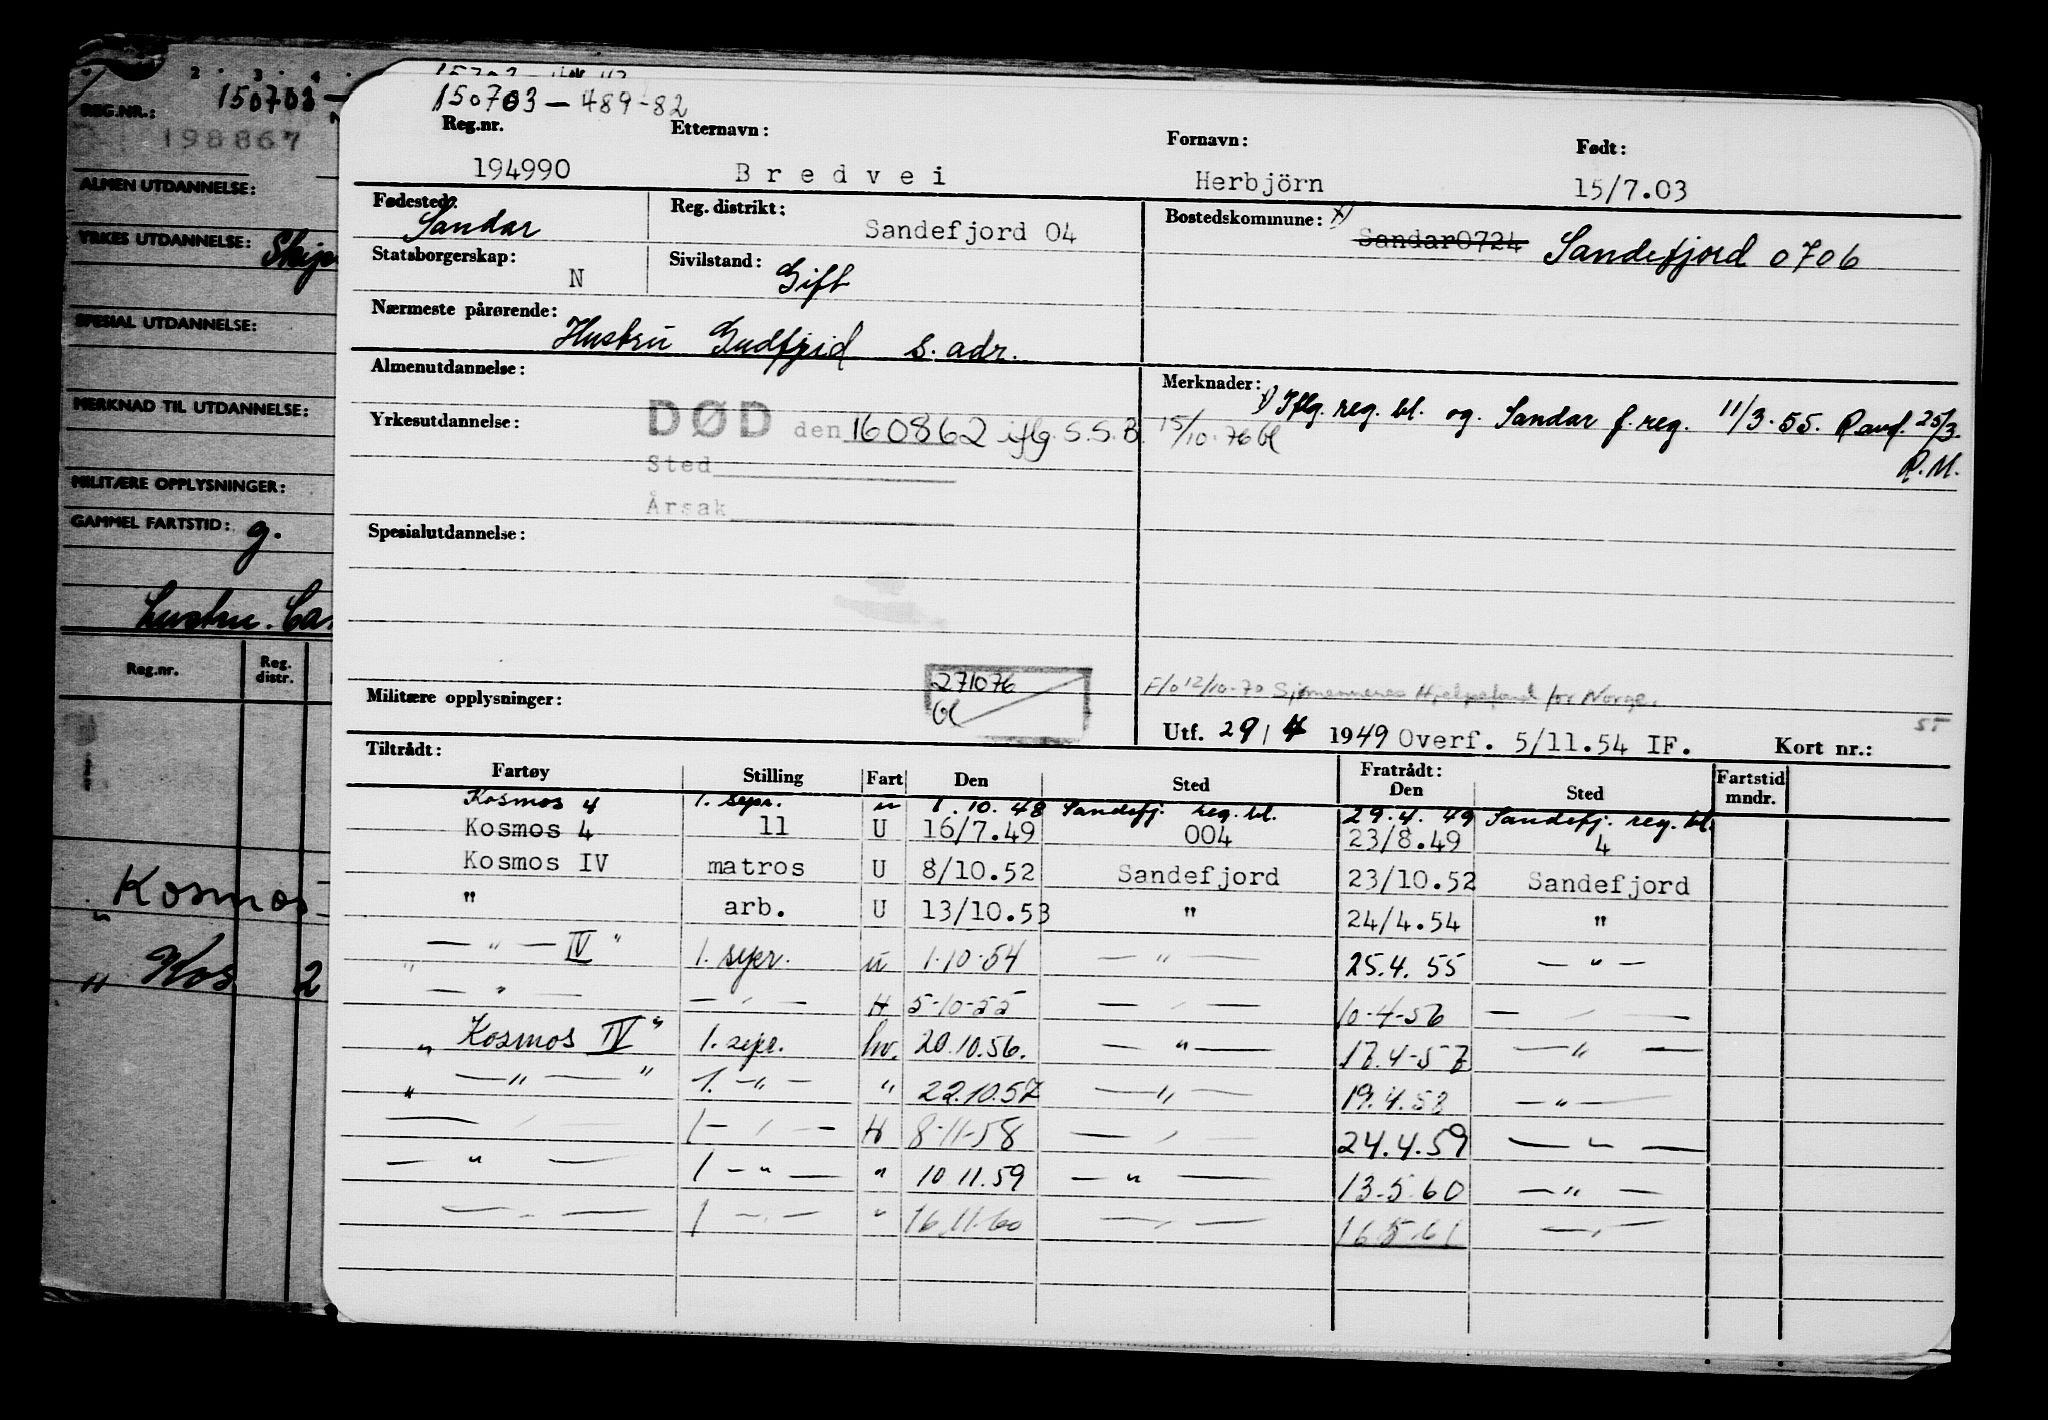 REG.NR.: 150703 -
198867
ALMEN UTDANNELSE:
YRKES UTDANNELSE:
SPESIAL UTDANNELSE:
MERKNAD TIL UTDANNELSE:
MILITÆRE OPPLYSNINGER:
GAMMEL FARTSTID: g.
Reg.nr. Reg. distr.
" Kosmos
" Kos 2
150703 - 489-82
Reg.nr. Etternavn: Fornavn: Født:
194990 Bredvei Herbjörn 15/7.03
Fødested: Sandar Reg. distrikt: Sandefjord 04 Bostedskommune: x) Sandar0724 Sandefjord 0706
Statsborgerskap: N Sivilstand: Gift
Nærmeste pårørende: Hustru s. adr.
Almenutdannelse: Merknader: x) Iflg. reg. bl. og Sandar f.reg. 11/3.55. 25/3.
R.M.
Yrkesutdannelse: DØD den 160862 iflg. S.S.B. 15/10-76 Gl
Sted
Årsak
Spesialutdannelse:
271076
Gl
Militære opplysninger: F/o 12/10-70 Sjømennenes Hjelpefond for Norge.
Utf. 29/4 1949 Overf. 5/11.54 IF. Kort nr.: 55
Tiltrådt: Fratrådt:
Fartøy Stilling Fart Den Sted Den Sted Fartstid mndr.
Kosmos 4 1. sepr. u 1.10.48 Sandefj. reg. bl. 29.4.49 Sandefj. reg. bl.
Kosmos 4 11 U 16/7.49 004 23/8.49 4
Kosmos IV matros U 8/10.52 Sandefjord 23/10.52 Sandefjord
" arb. U 13/10.53 " 24/4.54 "
" — " — IV " 1. sepr. u 1.10.54 — " — 25.4.55 — " —
— " — — " — H 5-10-55 — " — 10-4-56 — " —
" Kosmos IV " 1. sepr. hv. 20.10.56. — " — 17.4-57 — " —
" — " — " 1. — " — " 22.10.57 — " — 19.4.58 — " —
— " — 1 — " — H 8-11-58 — " — 24.4.59 — " —
— " — 1 — " — " 10 11.59 — " — 13.5.60 — " —
— " — 1 — " — " 16.11.60 — " — 16.5.61 — " —